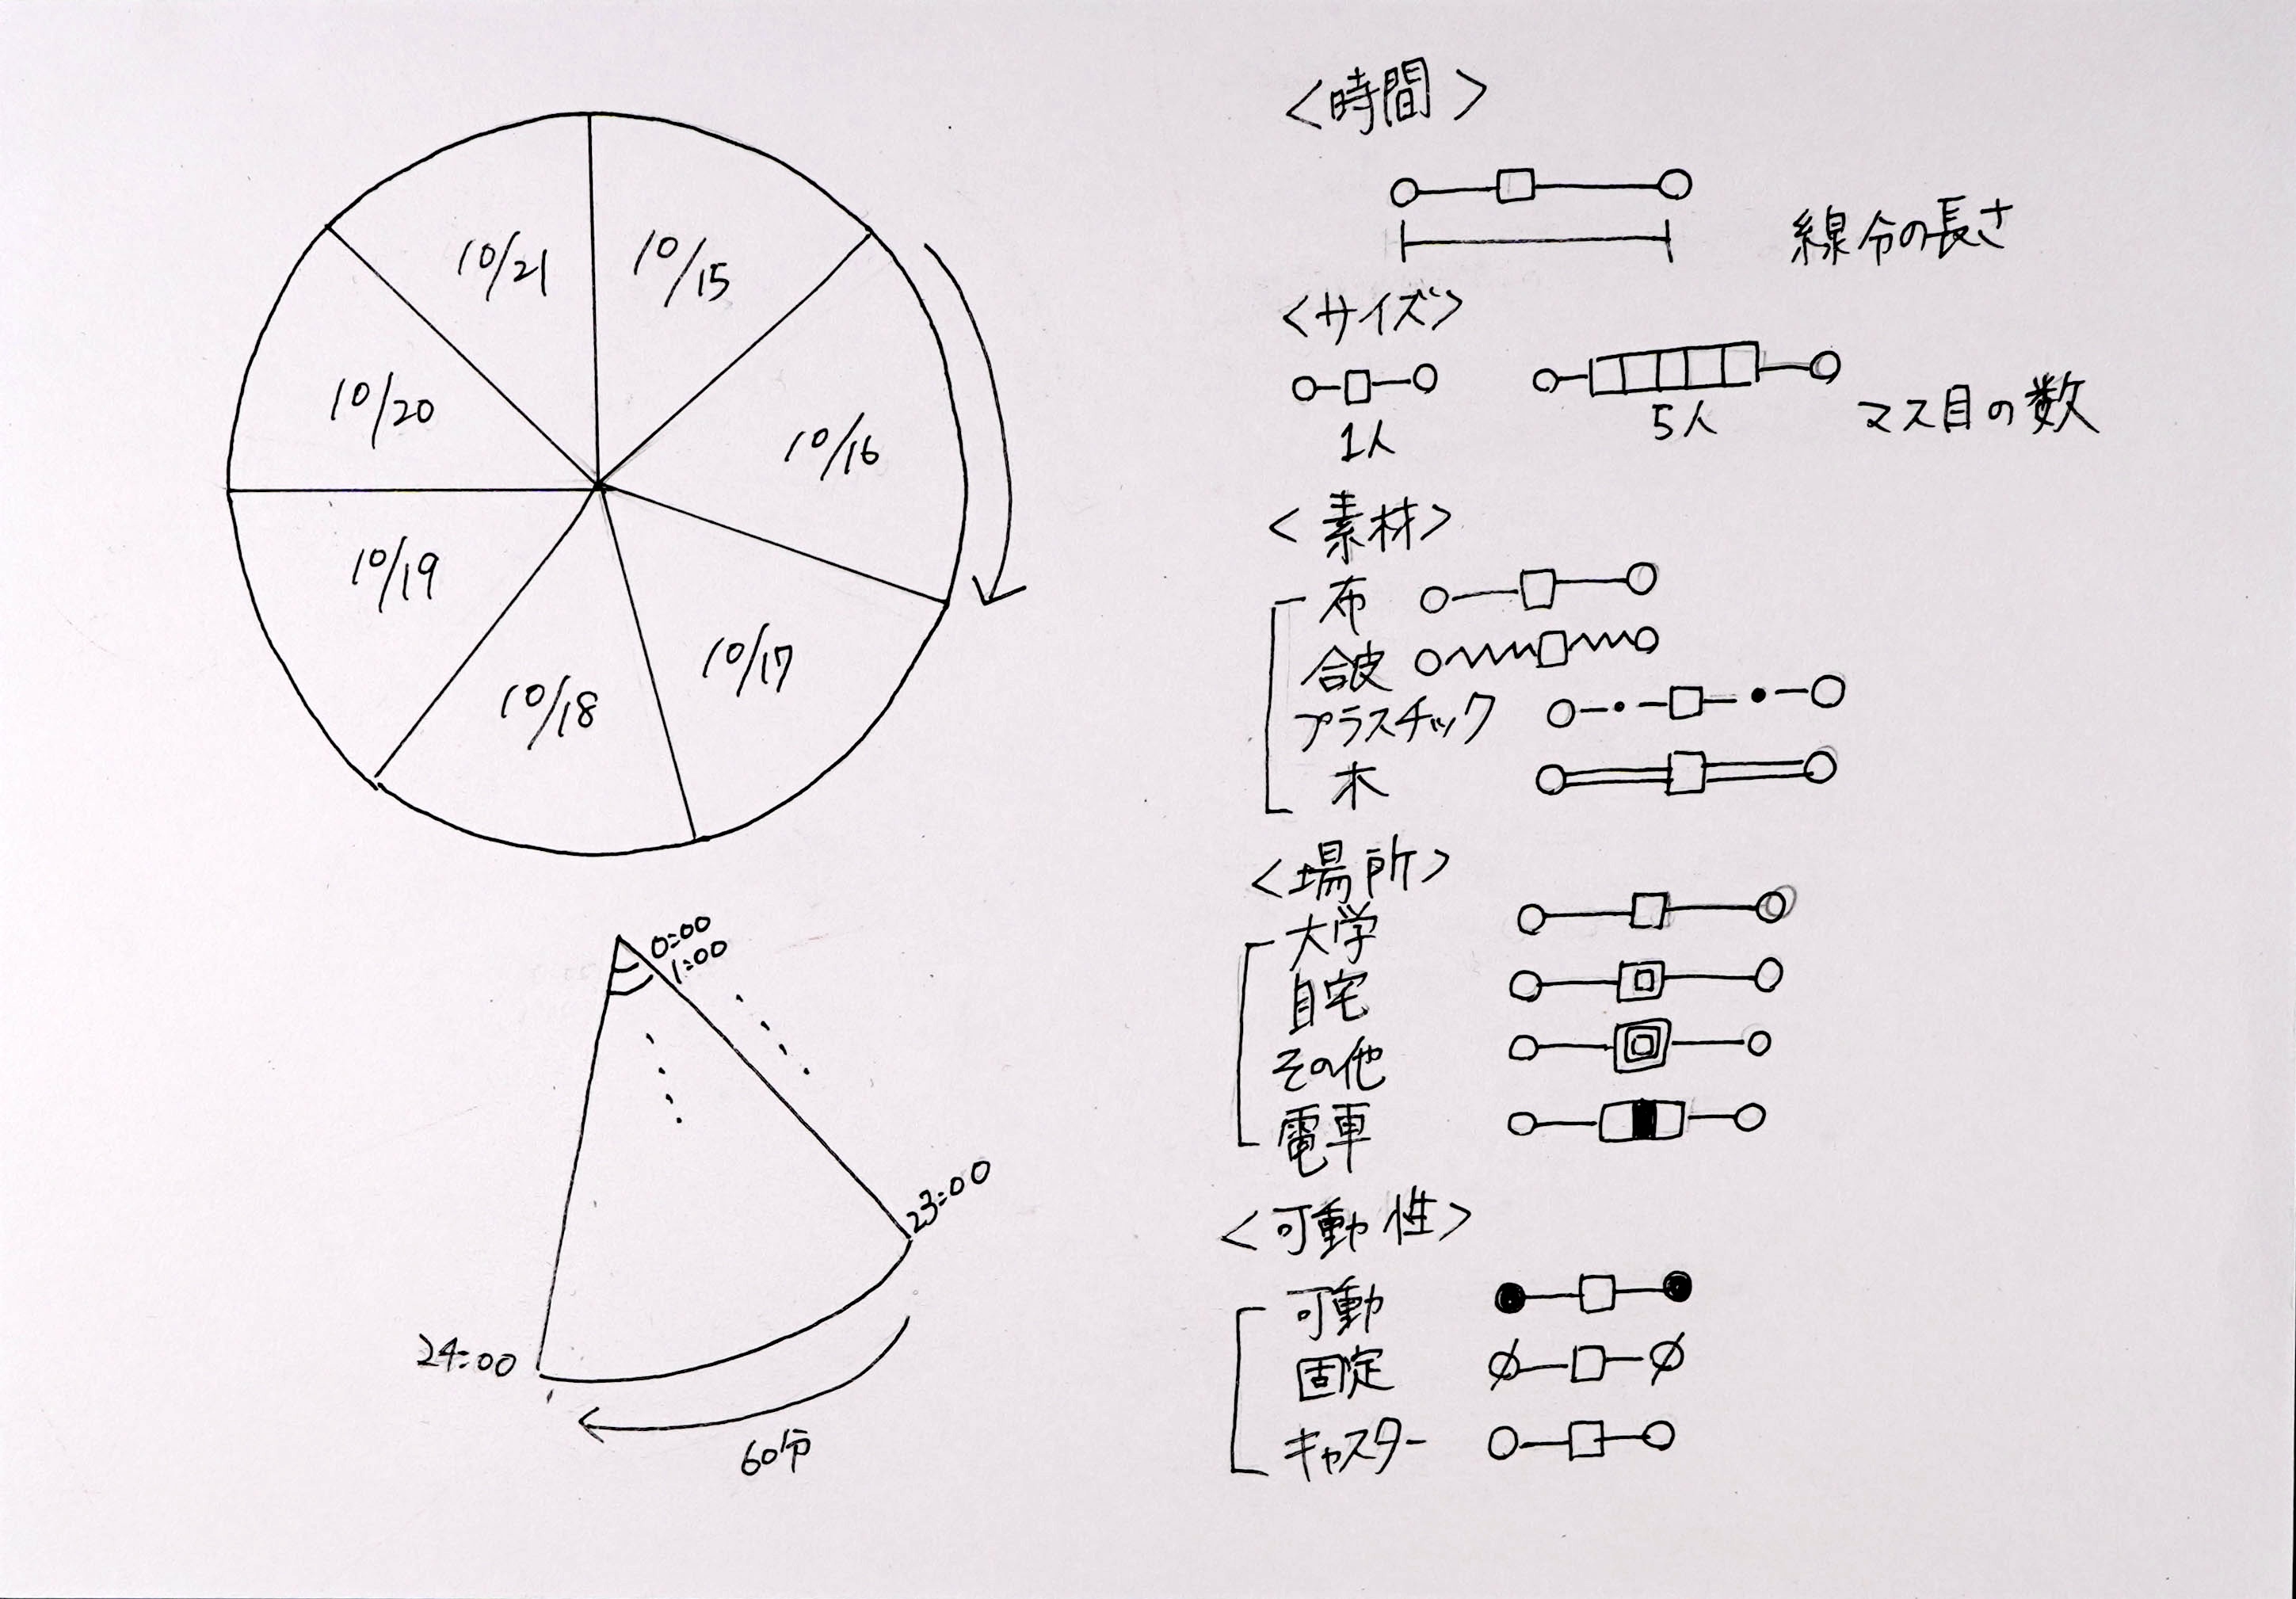 10/21
10/15
10/20
10/16
10/19
10/17
10/18
0:00
1:00
23:00
24:00
60分
<時間>
線分の長さ
<サイズ>
1人
5人
マス目の数
<素材>
布
合皮
プラスチック
木
<場所>
大学
自宅
その他
電車
<可動性>
可動
固定
キャスター